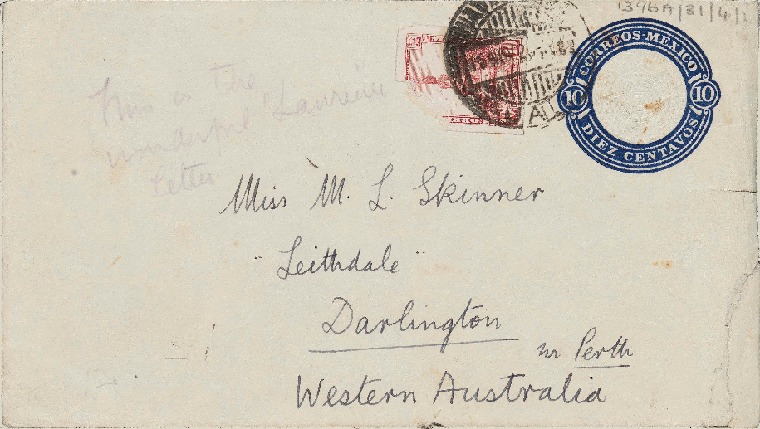 1396A/31/4/1
CORREOS-MEXICO
10 10
DIEZ CENTAVOS
This is the
wonderful Lawrence
letter
Miss M. L. Skinner
"Leithdale"
Darlington
nr Perth
Western Australia